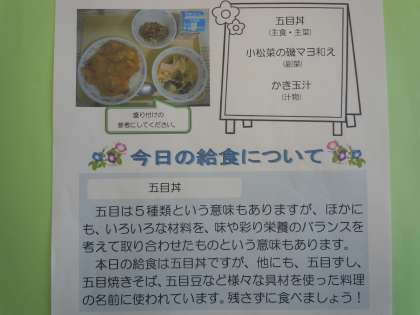 五目丼
(主食・主菜)
小松菜の磯マヨ和え
(副菜)
かき玉汁
(汁物)
盛り付けの
参考にしてください。
今日の給食について
五目丼
五目は5種類という意味もありますが、ほかに
も、いろいろな材料を、味や彩り栄養のバランスを
考えて取り合わせたものという意味もあります。
本日の給食は五目丼ですが、他にも、五目ずし、
五目焼きそば、五目豆など様々な具材を使った料理
の名前に使われています。残さずに食べましょう！